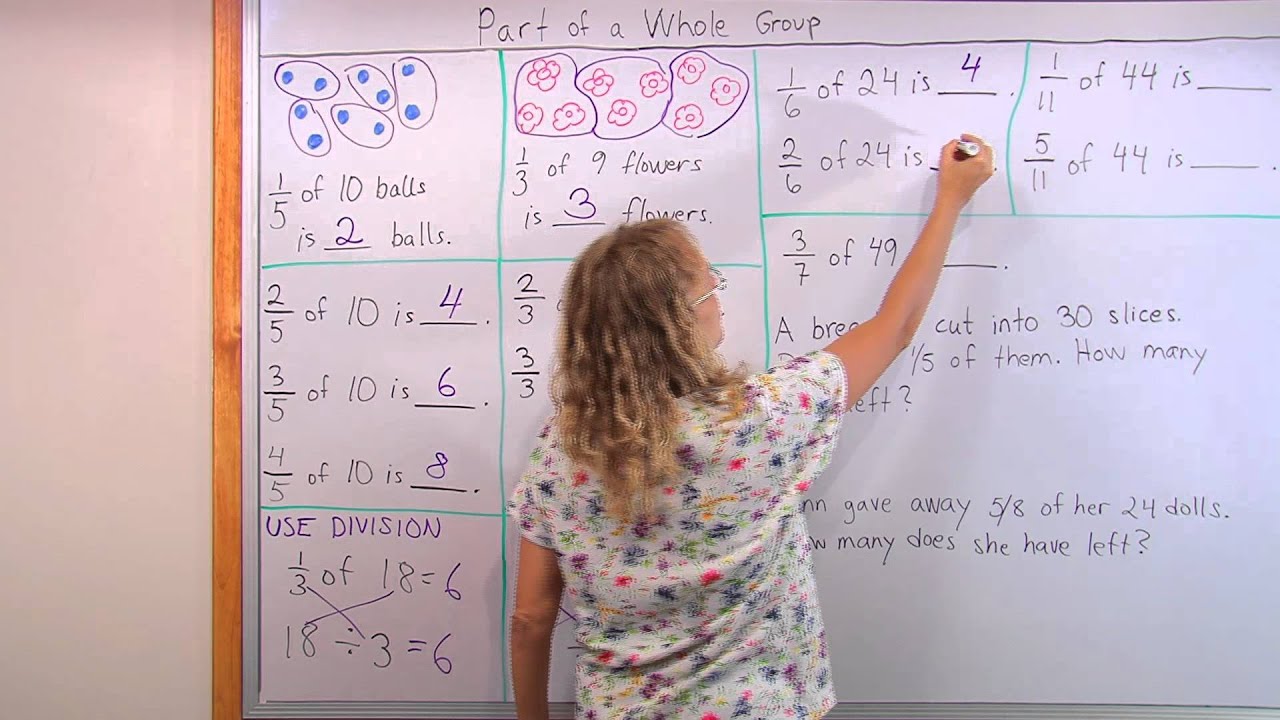 Part of a Whole Group
1/5 of 10 balls
is 2 balls.
1/3 of 9 flowers
is 3 flowers.
1/6 of 24 is 4.
2/6 of 24 is
1/11 of 44 is ____
5/11 of 44 is ____.
2/5 of 10 is 4.
3/5 of 10 is 6.
4/5 of 10 is 8.
2/3
3/3
3/7 of 49 ____.
A cut into 30 slices.
1/5 of them. How many
left?
gave away 5/8 of her 24 dolls.
many does she have left?
USE DIVISION
1/3 of 18 = 6
18 ÷ 3 = 6